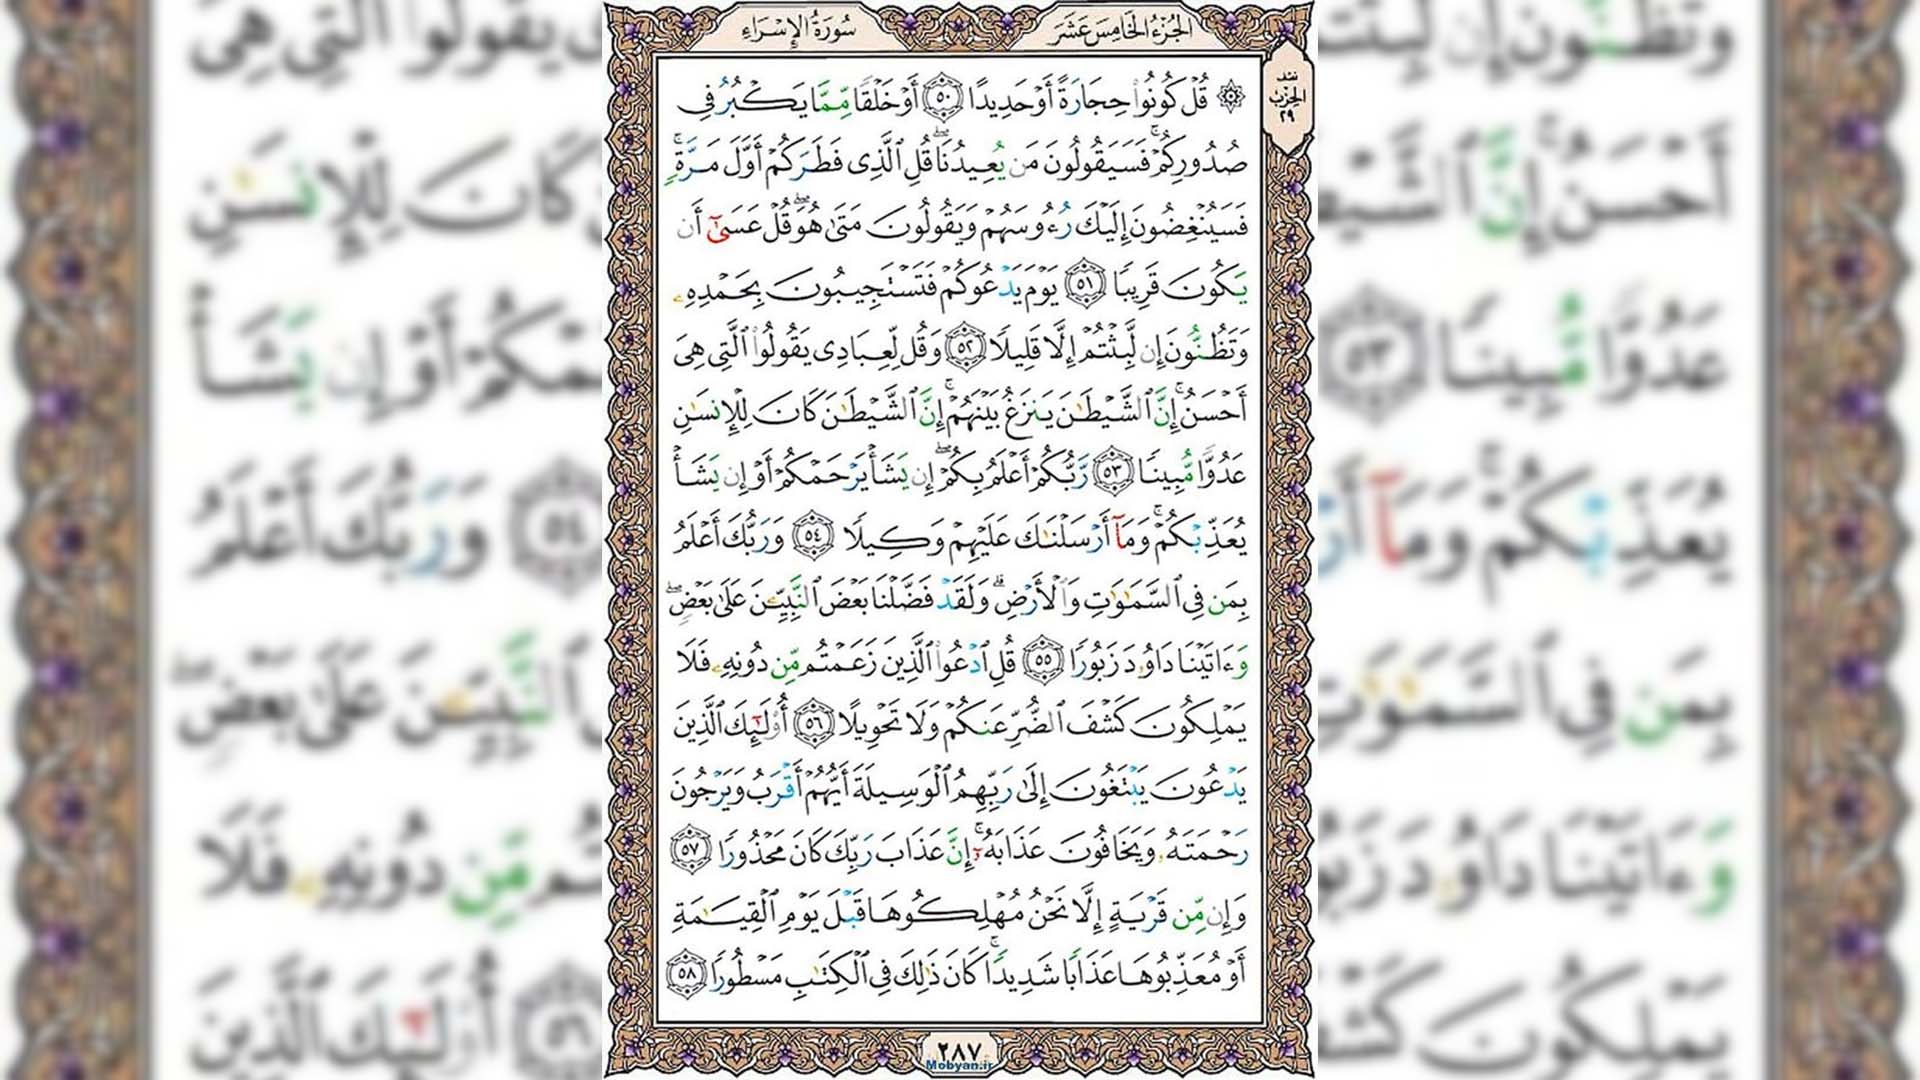 الجُزْءُ الخَامِسَ عَشَرَ
سُورَةُ الإِسْرَاءِ
نصف
الحزب
٢٩
۞ قُلْ كُونُوا۟ حِجَارَةً أَوْ حَدِيدًا ٥٠ أَوْ خَلْقًا مِّمَّا يَكْبُرُ فِى
صُدُورِكُمْ ۚ فَسَيَقُولُونَ مَن يُعِيدُنَا ۖ قُلِ ٱلَّذِى فَطَرَكُمْ أَوَّلَ مَرَّةٍ ۚ
فَسَيُنْغِضُونَ إِلَيْكَ رُءُوسَهُمْ وَيَقُولُونَ مَتَىٰ هُوَ ۖ قُلْ عَسَىٰٓ أَن
يَكُونَ قَرِيبًا ٥١ يَوْمَ يَدْعُوكُمْ فَتَسْتَجِيبُونَ بِحَمْدِهِۦ
وَتَظُنُّونَ إِن لَّبِثْتُمْ إِلَّا قَلِيلًا ٥٢ وَقُل لِّعِبَادِى يَقُولُوا۟ ٱلَّتِى هِىَ
أَحْسَنُ ۚ إِنَّ ٱلشَّيْطَـٰنَ يَنزَغُ بَيْنَهُمْ ۚ إِنَّ ٱلشَّيْطَـٰنَ كَانَ لِلْإِنسَـٰنِ
عَدُوًّا مُّبِينًا ٥٣ رَّبُّكُمْ أَعْلَمُ بِكُمْ ۖ إِن يَشَأْ يَرْحَمْكُمْ أَوْ إِن يَشَأْ
يُعَذِّبْكُمْ ۚ وَمَآ أَرْسَلْنَـٰكَ عَلَيْهِمْ وَكِيلًا ٥٤ وَرَبُّكَ أَعْلَمُ
بِمَن فِى ٱلسَّمَـٰوَٰتِ وَٱلْأَرْضِ ۗ وَلَقَدْ فَضَّلْنَا بَعْضَ ٱلنَّبِيِّـۧنَ عَلَىٰ بَعْضٍ ۖ
وَءَاتَيْنَا دَاوُۥدَ زَبُورًا ٥٥ قُلِ ٱدْعُوا۟ ٱلَّذِينَ زَعَمْتُم مِّن دُونِهِۦ فَلَا
يَمْلِكُونَ كَشْفَ ٱلضُّرِّ عَنكُمْ وَلَا تَحْوِيلًا ٥٦ أُو۟لَـٰٓئِكَ ٱلَّذِينَ
يَدْعُونَ يَبْتَغُونَ إِلَىٰ رَبِّهِمُ ٱلْوَسِيلَةَ أَيُّهُمْ أَقْرَبُ وَيَرْجُونَ
رَحْمَتَهُۥ وَيَخَافُونَ عَذَابَهُۥٓ ۚ إِنَّ عَذَابَ رَبِّكَ كَانَ مَحْذُورًا ٥٧
وَإِن مِّن قَرْيَةٍ إِلَّا نَحْنُ مُهْلِكُوهَا قَبْلَ يَوْمِ ٱلْقِيَـٰمَةِ
أَوْ مُعَذِّبُوهَا عَذَابًا شَدِيدًا ۚ كَانَ ذَٰلِكَ فِى ٱلْكِتَـٰبِ مَسْطُورًا ٥٨
٢٨٧
Mobyan.ir